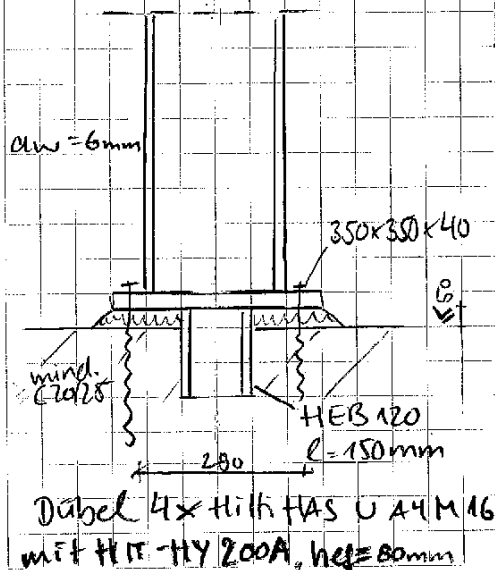 aw = 6mm
350x350x40
mind.
C20/25
HEB 120
l = 150mm
280
Dübel 4x Hilti HAS U A4 M16
mit HIT-HY 200A, hef = 80mm